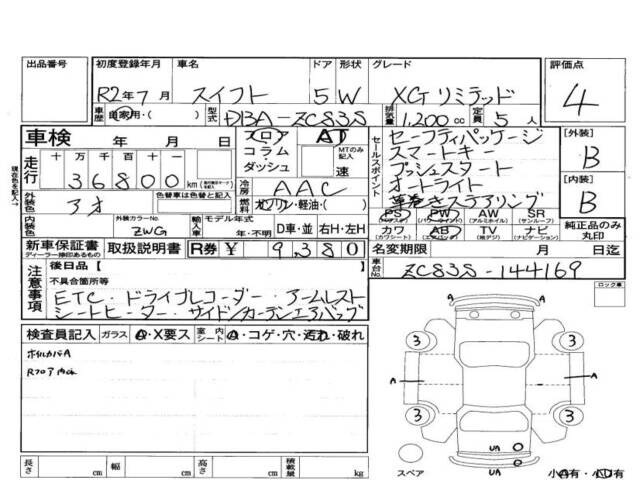 出品番号 初度登録年月 車名 ドア 形状 グレード 評価点
R2年7月 スイフト 5 W XGリミテッド 4
車歴 自家用・( ) 型式 DBA-ZC83S 排気量 1,200cc 定員 5人
車検 年 月 日 フロア AT セーフティパッケージ [外装]
現在色を記入→
走行 十万千百十一 コラム MTのみ記入 セールスポイント スマートキー B
36800 km ダッシュ 速 プッシュスタート
外装色 アオ 色替車は色替と元色も記入 冷房 AAC オートライト [内装]
燃料 ガソリン・軽油・( ) 革巻きステアリング B
内装色 外装カラーNo. ZWG 輸入車 モデル年式 年・不明 D車・並 右H・左H PS (パワステ) PW (パワーウインド) AW (アルミホイル) SR (サンルーフ)
カワ (カワシート) AB (エアバッグ) TV (地デジ) ナビ (ナビゲーション) 純正品のみ丸印
新車保証書 ディーラー捺印あるもの 取扱説明書 R券 ¥ 9,380 名変期限 月 日迄
注意事項 後日品【 】 車台No. ZC83S-144169
不具合箇所等 ロック車
ETC・ドライブレコーダー・アームレスト
シートヒーター・サイドカーテンエアバッグ
検査員記入 ガラス A・X要ス 室内シート A・コゲ・穴・汚れ・破れ
ホイルカバA
Rフロア
3 3
A A
3 3
UA
スペア UA 小A有・小U有
長さ cm 幅 cm 高さ cm 積載量 kg